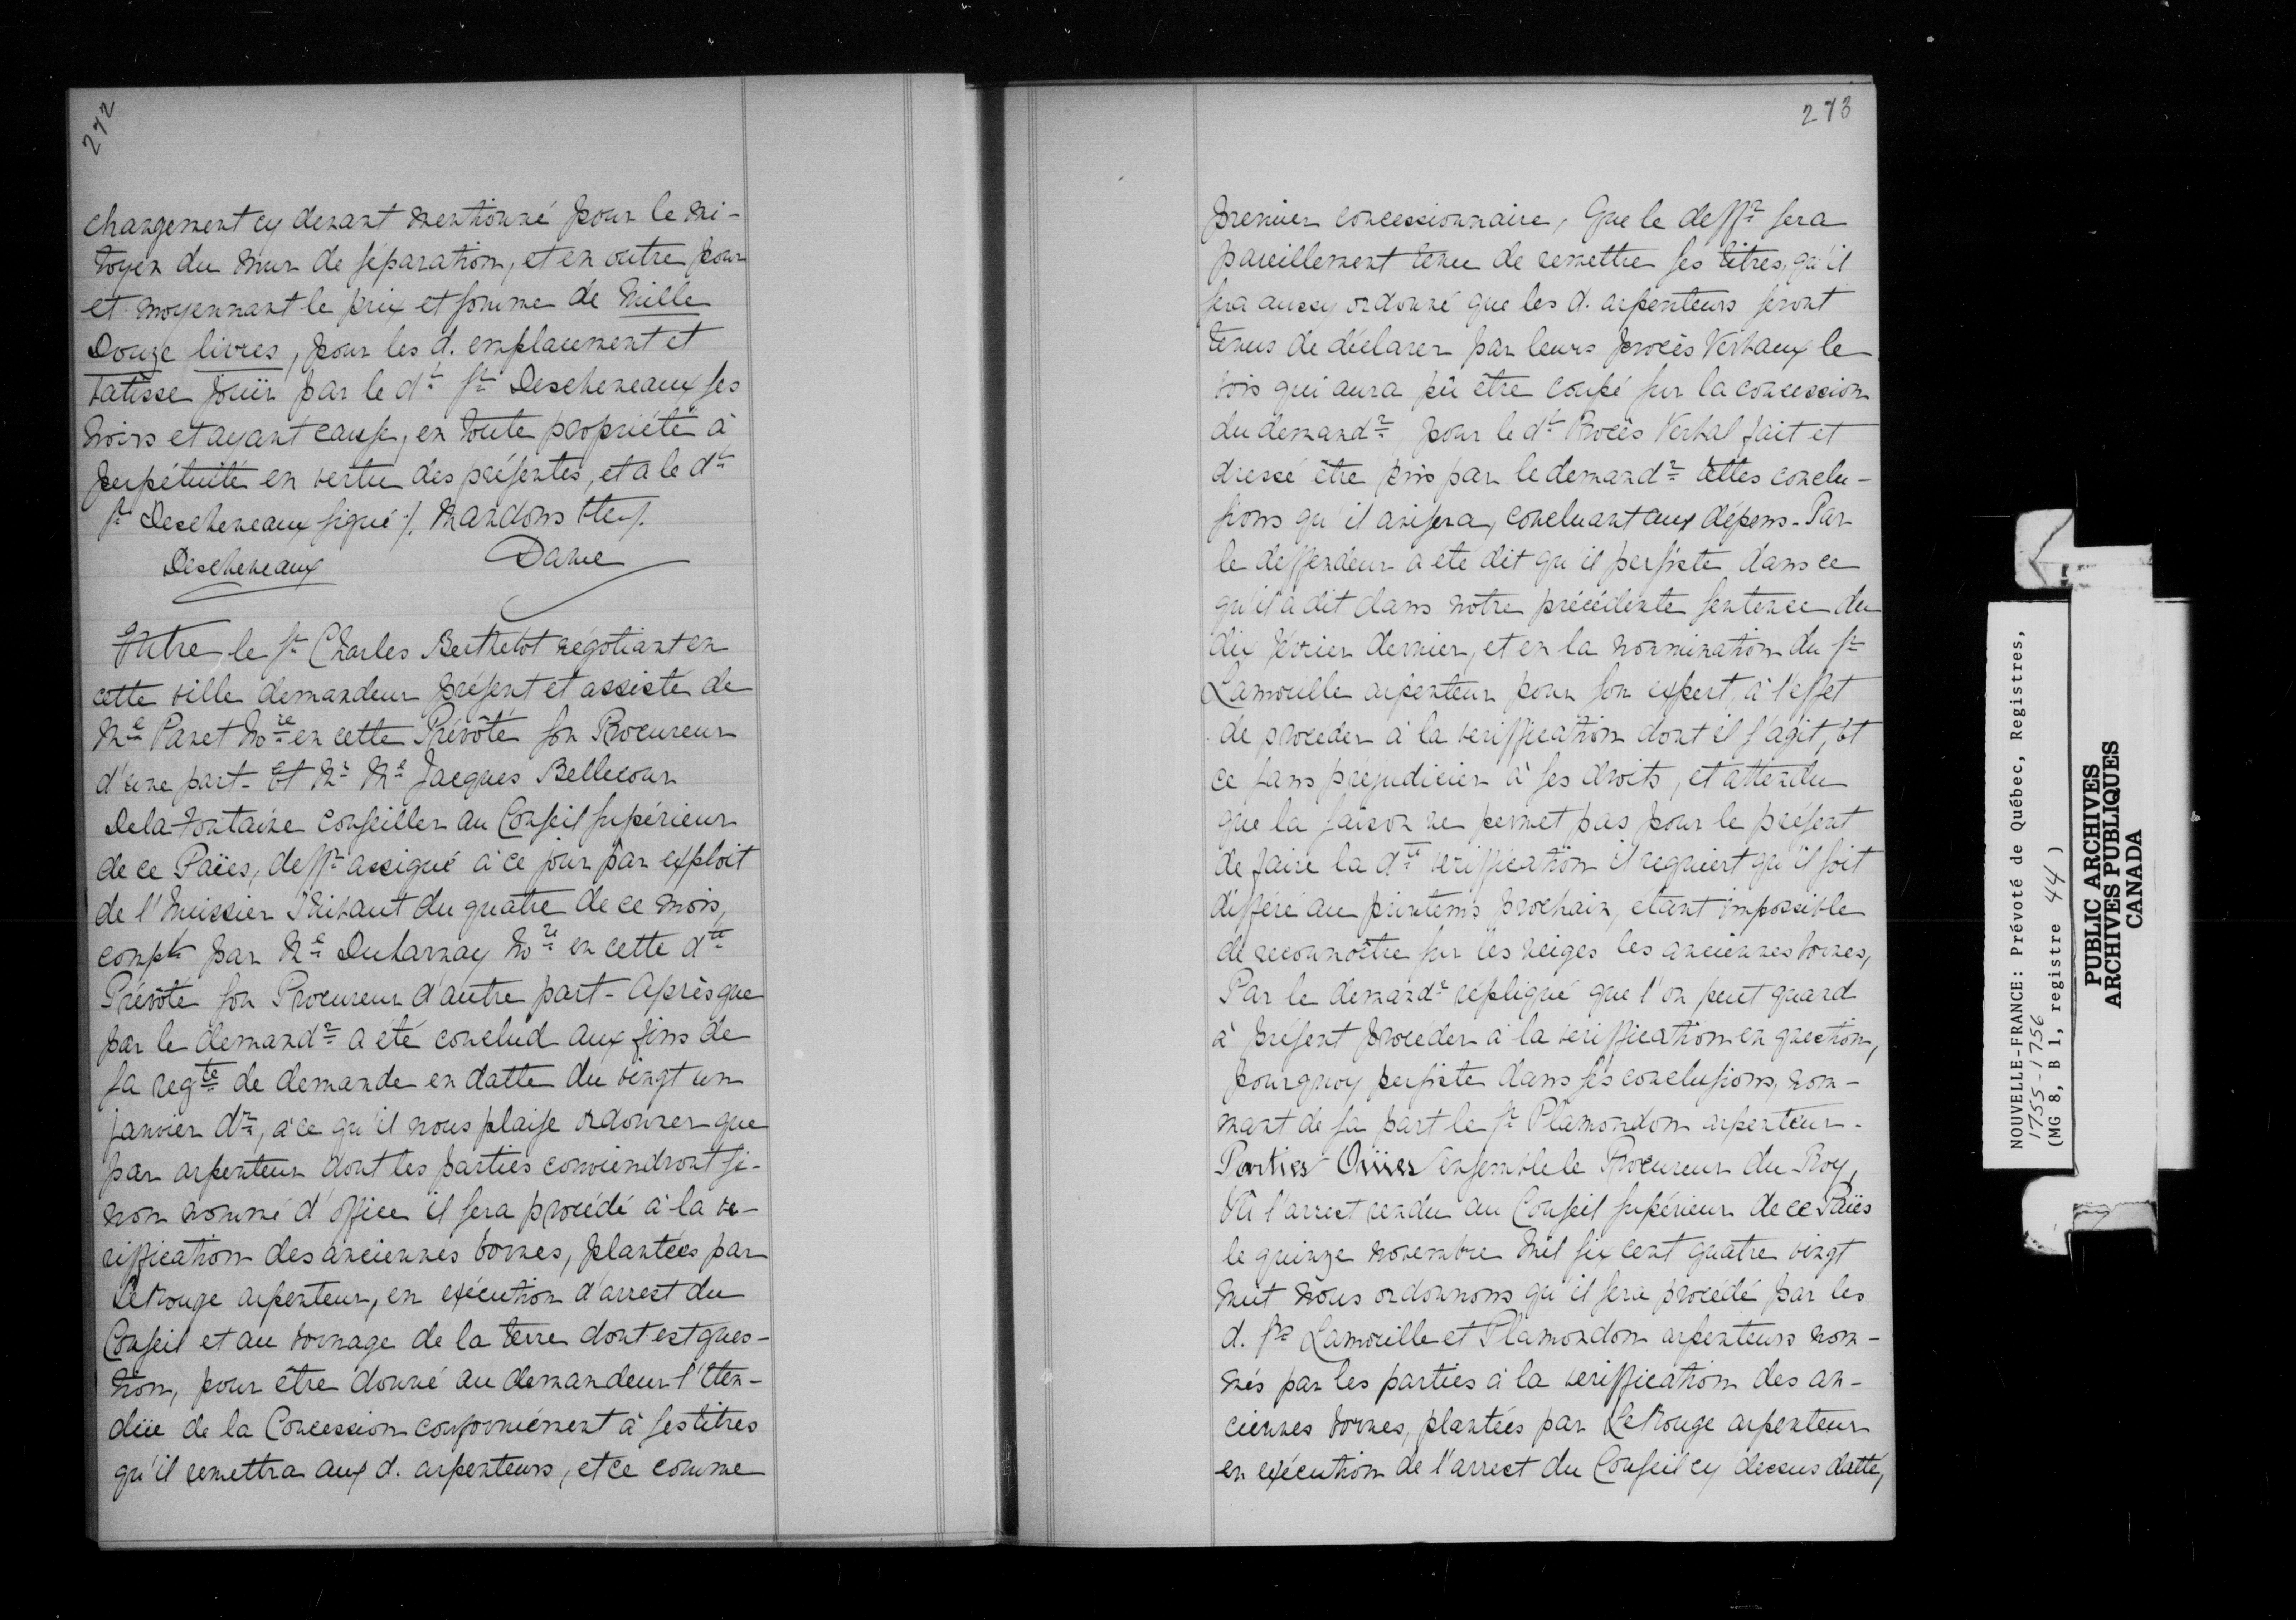 272
changement cy devant mentionné pour le mi-
toyen du mur de séparation, et en outre pour
et moyennant le prix et somme de Mille
Douze livres, pour les d. emplacement et
batisse jouïr par le dt Sr Descheneaux ses
hoirs et ayant cause, en toute propriété à
perpétuité en vertu des présentes, et a le dt
Sr Descheneaux signé ./. Mandons &c./.
Descheneaux Daine
Entre le Sr Charles Berthelot négotiant en
cette ville demandeur présent et assisté de
Me Panet Nore en cette Prévôté son Procureur
d'une part - Et Mr Me Jacques Bellecour
Dela-Fontaine conseiller au Conseil supérieur
de ce Païes, deffr assigné à ce jour par exploit
de l'huissier Thibaut du quatre de ce mois,
compt par Me Dulaurnay Nore en cette dte
Prévôté son Procureur d'autre part - Après que
par le demandr a été conclud aux fins de
sa reqte de demande en datte du vingt un
janvier dr, à ce qu'il nous plaise ordonner que
par arpenteur dont les parties conviendront si-
non nommé d'office il sera procédé à la ve-
riffication des anciennes bornes, plantées par
LeRouge arpenteur, en exécution d'arrest du
Conseil et au bornage de la terre dont est ques-
tion, pour être donné au demandeur l'éten-
düe de la Concession conformément à ses titres
qu'il remettra aux d. arpenteurs, et ce comme
273
premier concessionnaire, Que le deffr sera
pareillement tenu de remettre ses titres, qu'il
sera aussy ordonné que les d. arpenteurs seront
tenus de déclarer par leurs procès Verbaux le
bois qui aura pû être coupé sur la concession
du demandr, pour le dt Procès Verbal fait et
dressé être pris par le demandr telles conclu-
sions qu'il avisera, concluant aux dépens - Par
le deffendeur a été dit qu'il persiste dans ce
qu'il a dit dans notre précédente sentence du
dix février dernier, et en la nomination du Sr
Lamorille arpenteur pour son expert, à l'effet
de proceder à la veriffication dont il s'agit, et
ce sans préjudicier à ses droits, et attendu
que la saison ne permet pas pour le présent
de faire la dte veriffication il requiert qu'il soit
différé au printems prochain, étant impossible
de reconnoître sur les neiges les anciennes bornes,
Par le demandr répliqué que l'on peut quand
à présent procéder à la veriffication en question,
pourquoy persiste dans ses conclusions, nom-
mant de sa part le Sr Plamondon arpenteur -
Parties Oüies ensemble le Procureur du Roy,
Vû l'arrest rendu au Conseil supérieur de ce Païes
le quinze novembre mil six cent quatre vingt
huit Nous ordonnons qu'il sera procédé par les
d. Srs Lamorille et Plamondon arpenteurs nom-
més par les parties à la veriffication des an-
ciennes bornes, plantées par LeRouge arpenteur
en exécution de l'arrest du Conseil cy dessus datté,
NOUVELLE-FRANCE: Prévoté de Québec, Registres,
1755-1756
(MG 8, B 1, registre 44)
PUBLIC ARCHIVES
ARCHIVES PUBLIQUES
CANADA